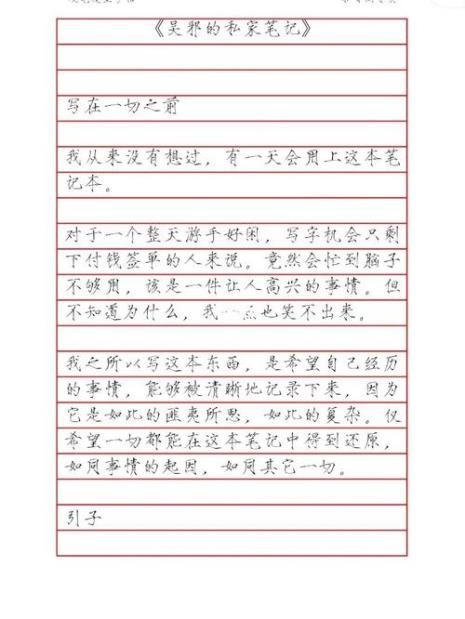 《吴邪的私家笔记》
写在一切之前
我从来没有想过，有一天会用上这本笔
记本。
对于一个整天游手好闲，写字机会只剩
下付钱签单的人来说。竟然会忙到脑子
不够用，该是一件让人高兴的事情。但
不知道为什么，我一点也笑不出来。
我之所以写这本东西，是希望自己经历
的事情，能够被清晰地记录下来，因为
它是如此的匪夷所思，如此的复杂。仅
希望一切都能在这本笔记中得到还原，
如同事情的起因，如同其它一切。
引子